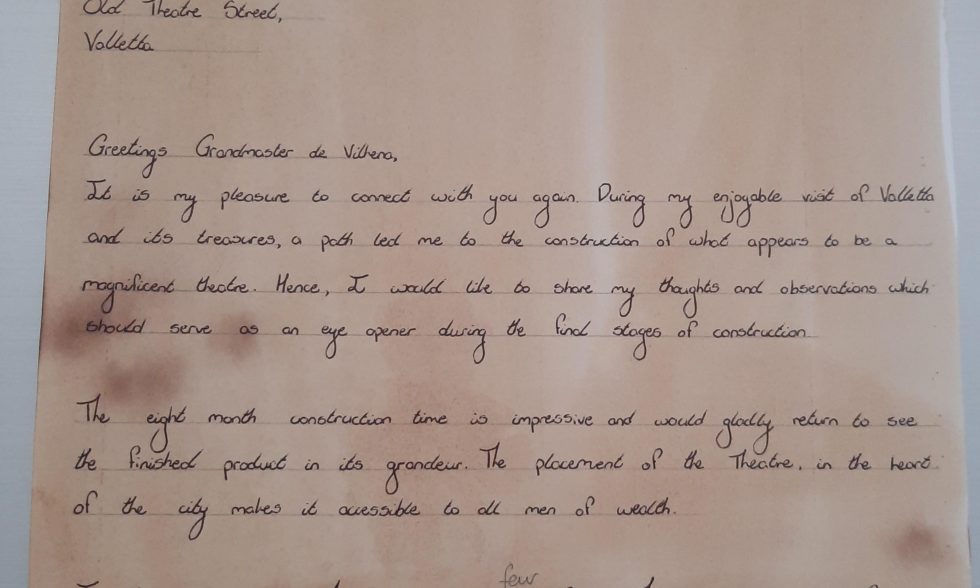 Old Theatre Street,
Valletta
Greetings Grandmaster de Vilhena,
It is my pleasure to connect with you again. During my enjoyable visit of Valletta
and its treasures, a path led me to the construction of what appears to be a
magnificent theatre. Hence, I would like to share my thoughts and observations which
should serve as an eye opener during the final stages of construction
The eight month construction time is impressive and would gladly return to see
the finished product in its grandeur. The placement of the Theatre, in the heart
of the city makes it accessible to all men of wealth.
few